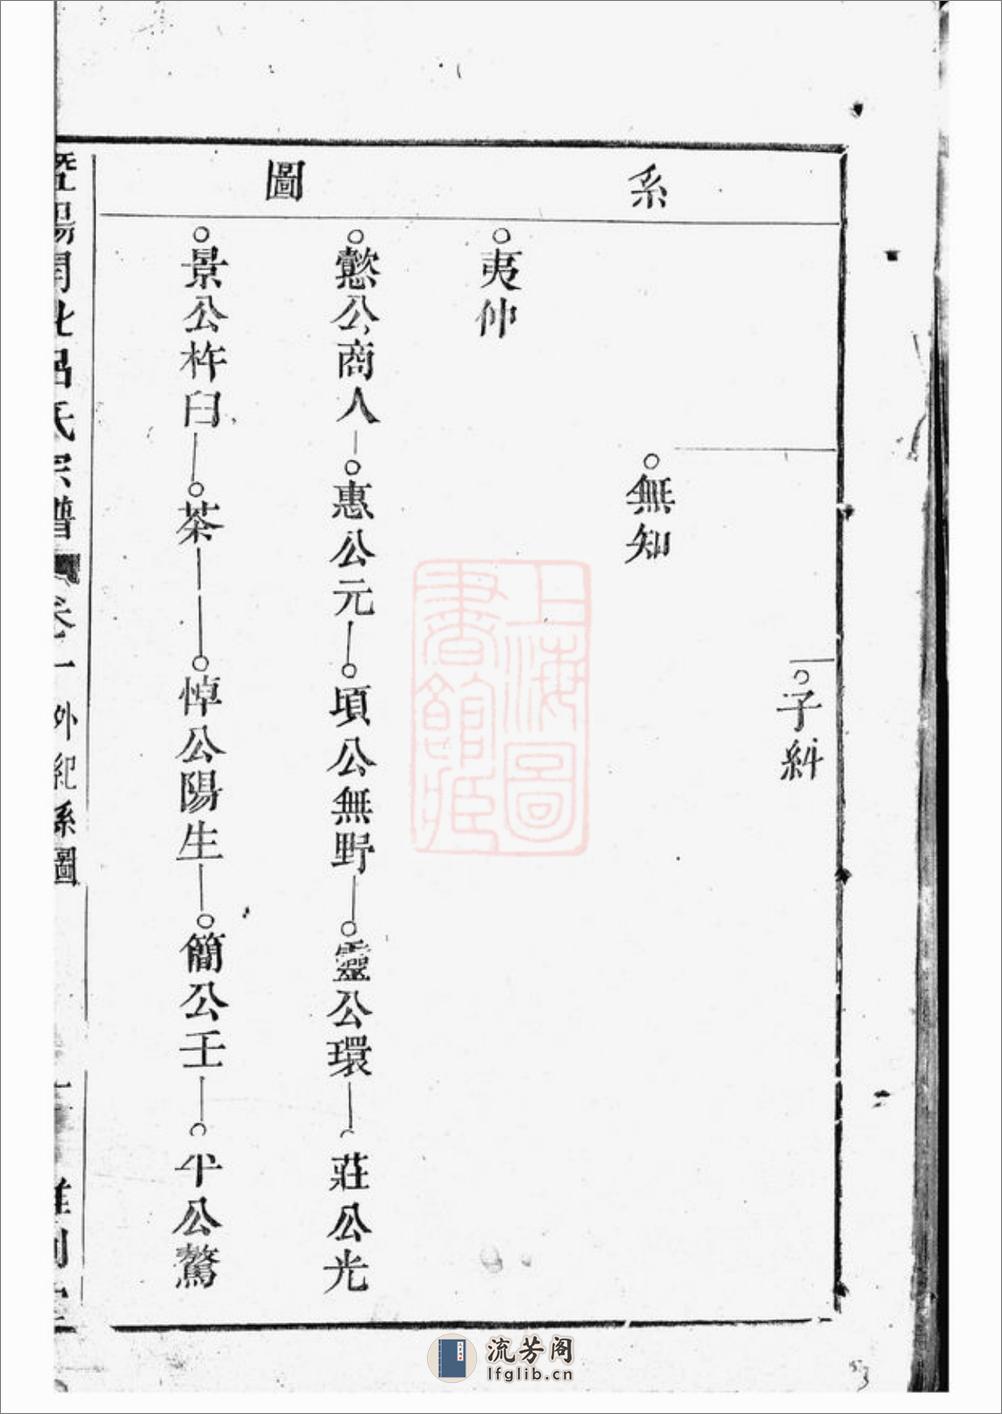 系圖
子糾
無知
夷仲
懿公商人 惠公元 頃公無野 靈公環 莊公光
景公杵臼 荼 悼公陽生 簡公壬 平公驁
暨陽開化呂氏宗譜 卷一 外紀系圖
上海圖書館藏
流芳阁
lfglib.cn